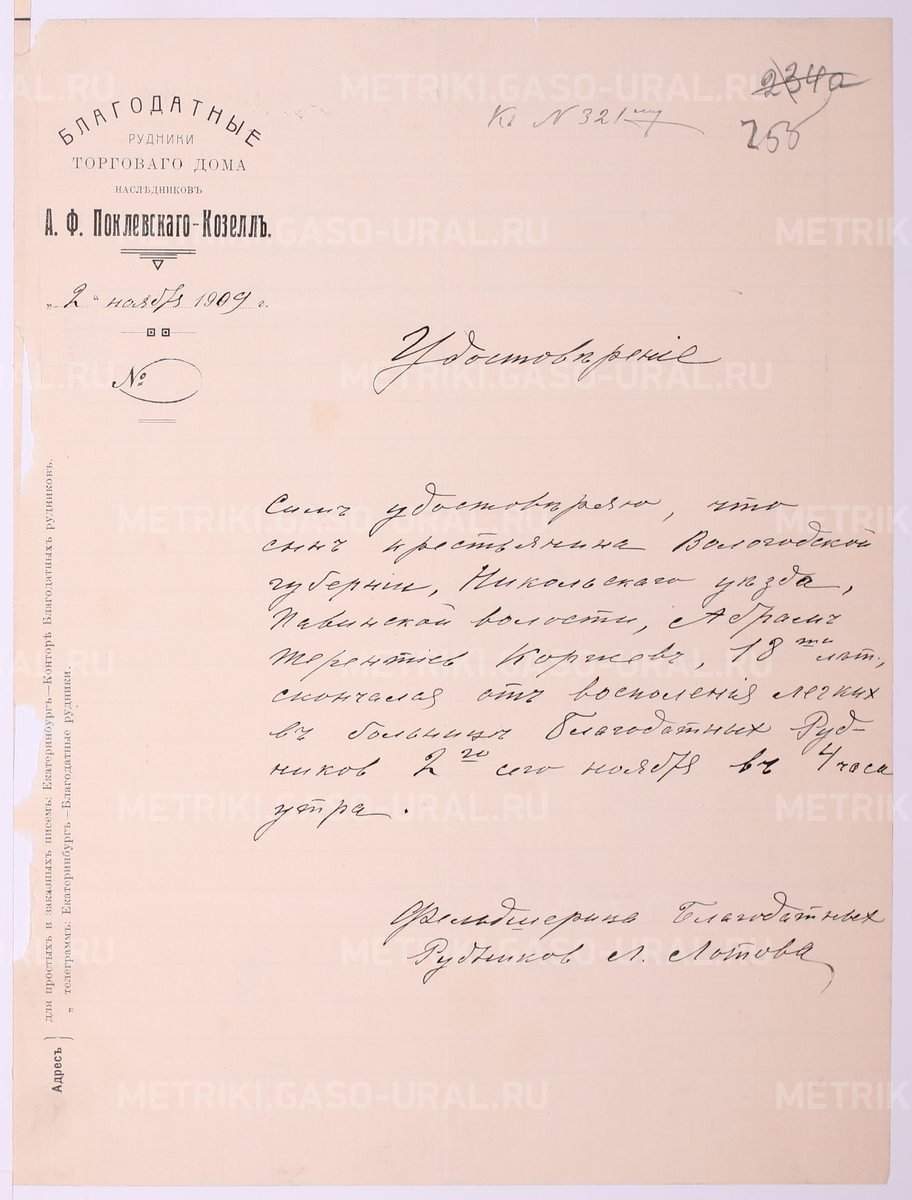 БЛАГОДАТНЫЕ
РУДНИКИ
ТОРГОВАГО ДОМА
НАСЛѢДНИКОВЪ
А. Ф. Поклевскаго-Козеллъ.
„2“ ноября 1909 г.
№
Къ N 321му
234а
255
Удостовѣреніе
Симъ удостовѣряю, что
сынъ крестьянина Вологодской
губерніи, Никольскаго уѣзда,
Павинской волости, Абрамъ
Терентіев Коржевъ, 18ти лѣт.,
скончался отъ воспаленія легких
въ больницѣ Благодатных Руд-
ников 2го сего ноября въ 4 часа
утра.
Фельдшерица Благодатных
Рудников Л. Лотова
Адресъ
для простыхъ и заказныхъ писемъ: Екатеринбургъ—Конторѣ Благодатныхъ рудниковъ.
„ телеграммъ: Екатеринбургъ—Благодатные рудники.
METRIKI.GASO-URAL.RU